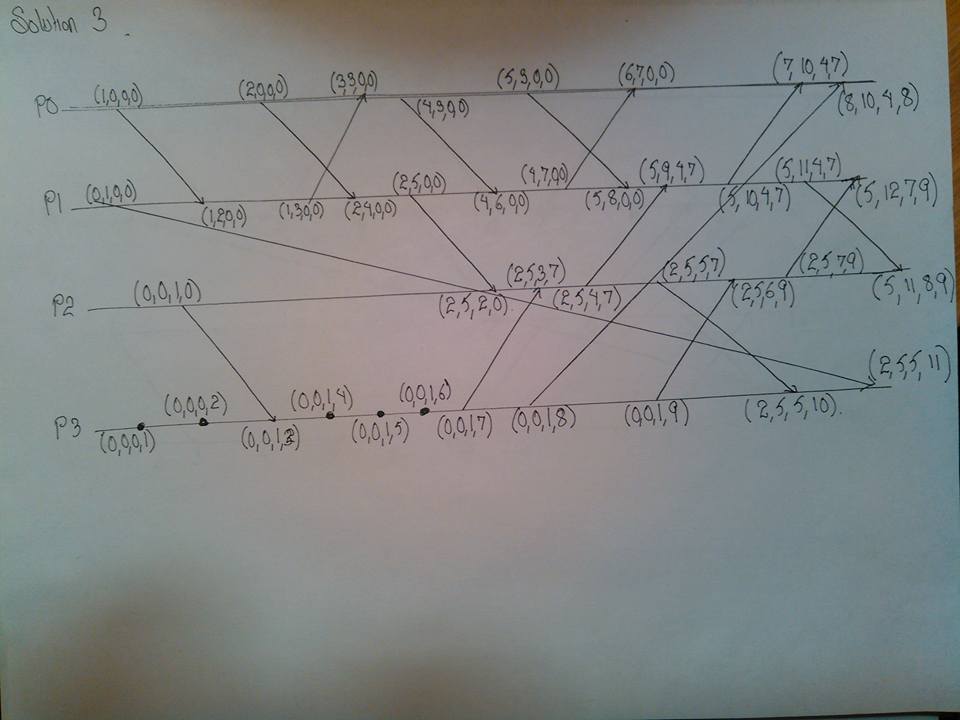 Solution 3.
P0 (1,0,0,0) (2,0,0,0) (3,3,0,0) (4,3,0,0) (5,3,0,0) (6,7,0,0) (7,10,4,7) (8,10,4,8)
P1 (0,1,0,0) (1,2,0,0) (1,3,0,0) (2,4,0,0) (2,5,0,0) (4,6,0,0) (4,7,0,0) (5,8,0,0) (5,9,4,7) (5,10,4,7) (5,11,4,7) (5,12,7,9)
P2 (0,0,1,0) (2,5,2,0) (2,5,3,7) (2,5,4,7) (2,5,5,7) (2,5,6,9) (2,5,7,9) (5,11,8,9)
P3 (0,0,0,1) (0,0,0,2) (0,0,1,3) (0,0,1,4) (0,0,1,5) (0,0,1,6) (0,0,1,7) (0,0,1,8) (0,0,1,9) (2,5,5,10). (2,5,5,11)